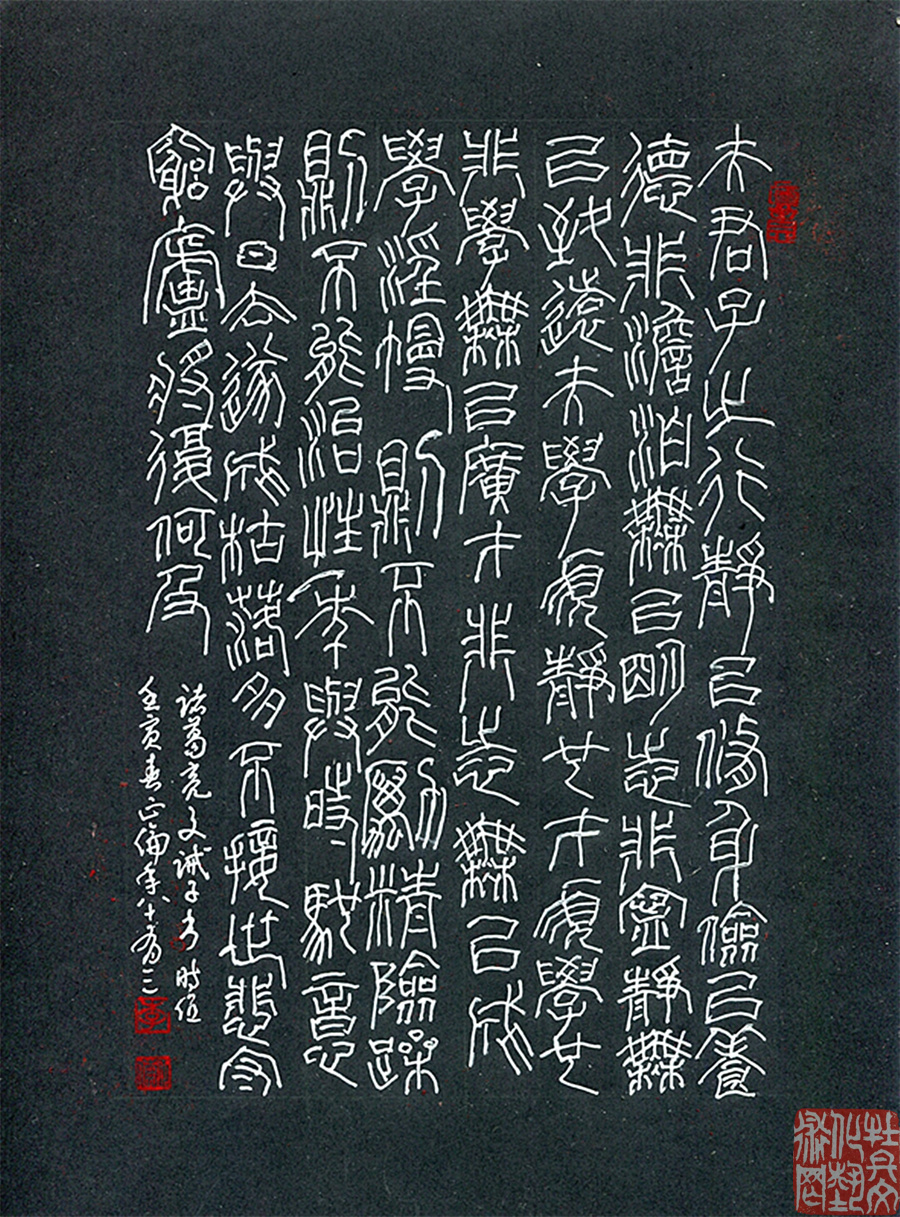 夫君子之行靜以修身儉以養
德非澹泊無以明志非寧靜無
以致遠夫學須靜也才須學也
非學無以廣才非志無以成
學淫慢則不能勵精險躁
則不能治性年與時馳意
與日去遂成枯落多不接世悲守
窮廬將復何及
诸葛亮文诫子书 时值
壬寅春正倫年八十有二
杜兵文
化藝
術网